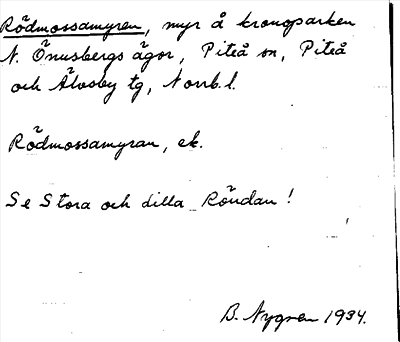 Rödmossamyren, myr å kronoparken
N. Önusbergs ägor, Piteå sn, Piteå
och Älvsby tg, Norrb. l.
Rödmossamyran, ek.
Se Stora och Lilla Röndan!
B. Nygren 1934.